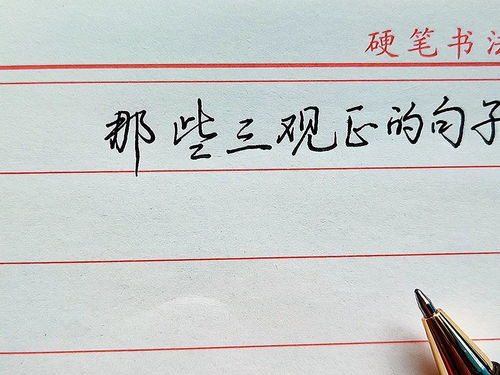 硬笔书法
那些三观正的句子